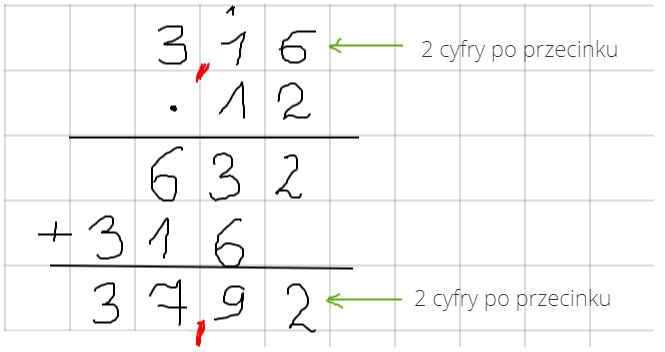 1
3,16 2 cyfry po przecinku
· 12
632
+316
37,92 2 cyfry po przecinku